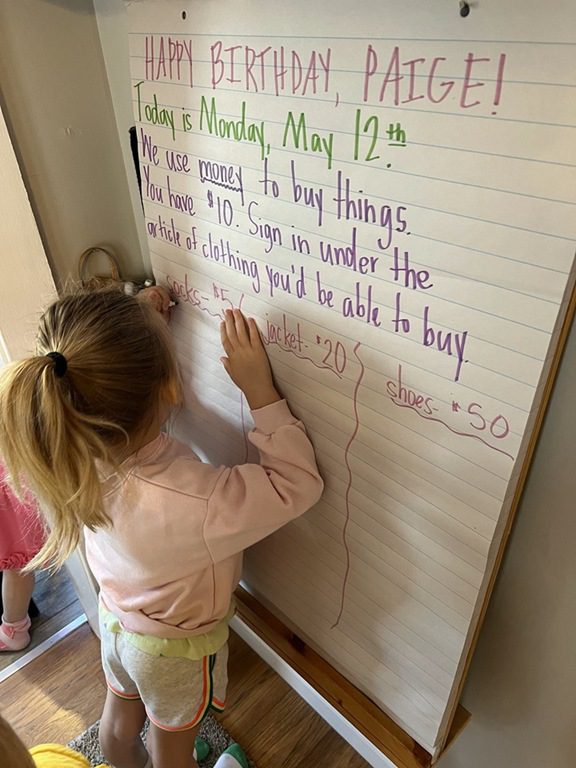 HAPPY BIRTHDAY, PAIGE!
Today is Monday, May 12th.
We use money to buy things.
You have $10. Sign in under the
article of clothing you'd be able to buy.
socks- $5
jacket- $20
shoes- $50